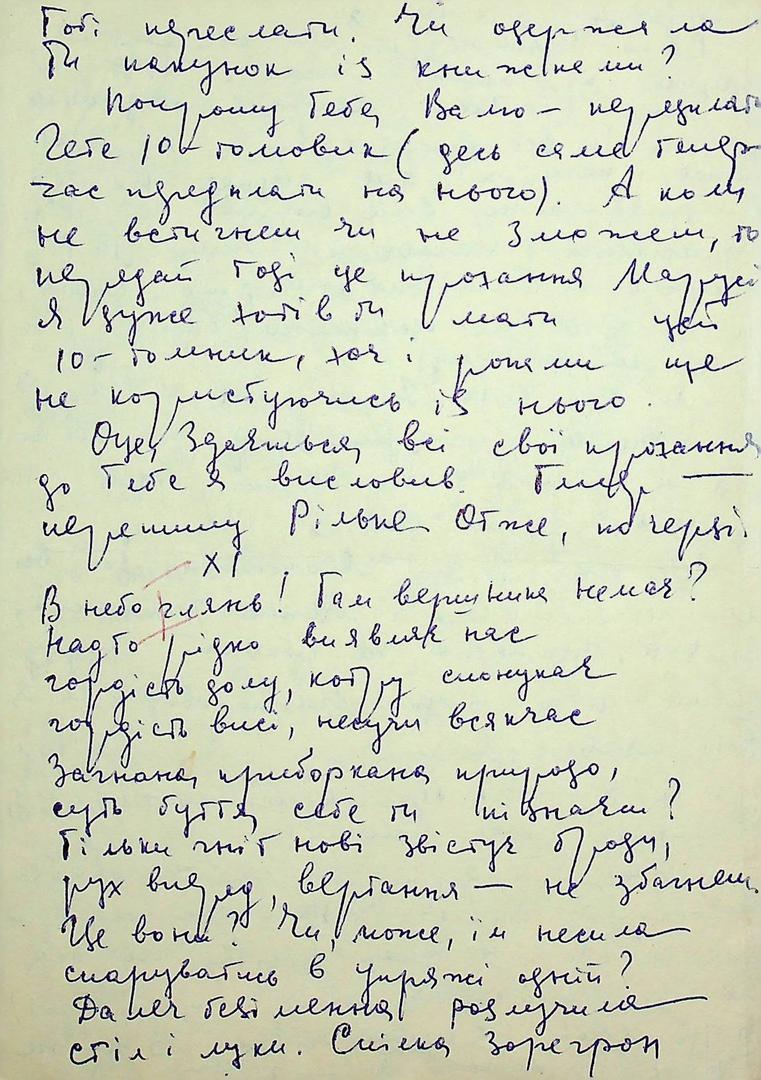 Тобі переслати. Чи одержала
Ти пакунок із книжками?
Попрошу Тебе, Валю – передплати
Гете 10-томовик (десь саме тепер
час передплати на нього). А коли
не встигнеш чи не зможеш, то
передай тоді це прохання Марусі
Я дуже хотів би мати цей
10-томник, хоч і роками ще
не користуючись із нього.
Оце, здається, всі свої прохання
до Тебе я висловив. Тепер –
перепишу Рільке. Отже, по черзі.
XI
В небо глянь! Там вершника немає?
Надто рідко виявляє нас
гордість долу, котру спонукає
гордість висі, несучи всякчас
Загнана, приборкана природо,
суть буття, себе ти пізнаєш?
Тільки гніт нові звістує броди,
рух вперед, вертання – не збагнеш.
Це вони? Чи, може, їм несила
спаруватись в упряжі одній?
Далеч безіменна розлучила
стіл і луки. Спілка зоregрон